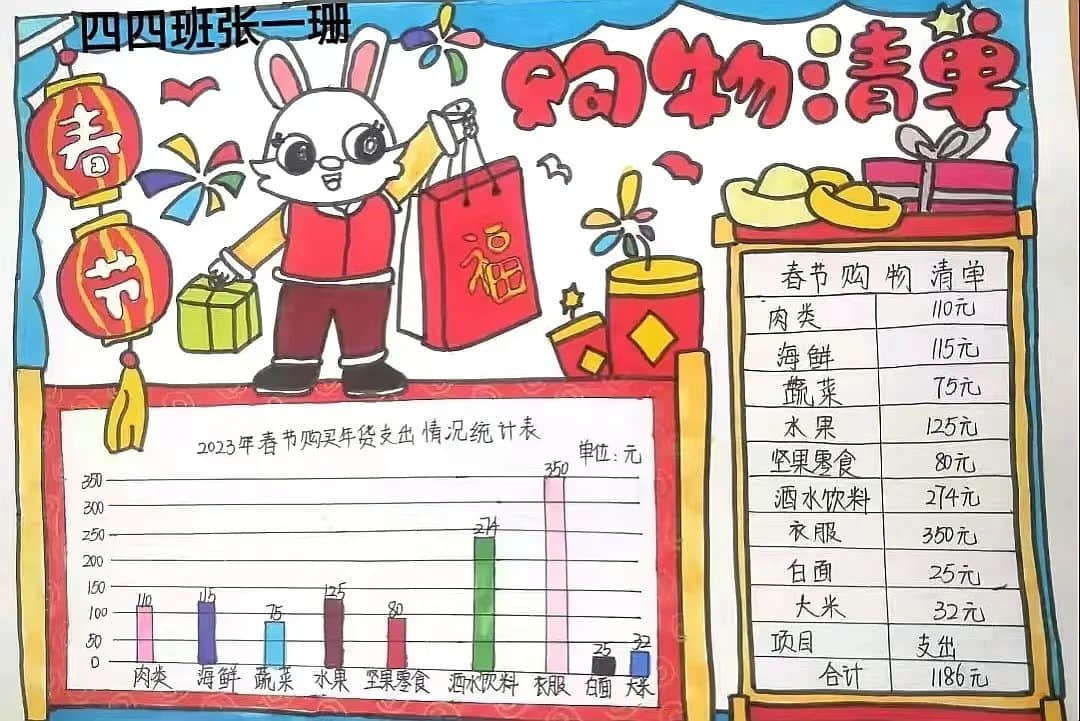 四四班张一珊
购物清单
春
节
福
2023年春节购买年货支出情况统计表
单位:元
350
300
250
200
150
100
50
0
110
115
75
125
80
274
350
25
32
肉类 海鲜 蔬菜 水果 坚果零食 酒水饮料 衣服 白面 大米
春节购物清单
肉类 110元
海鲜 115元
蔬菜 75元
水果 125元
坚果零食 80元
酒水饮料 274元
衣服 350元
白面 25元
大米 32元
项目 支出
合计 1186元